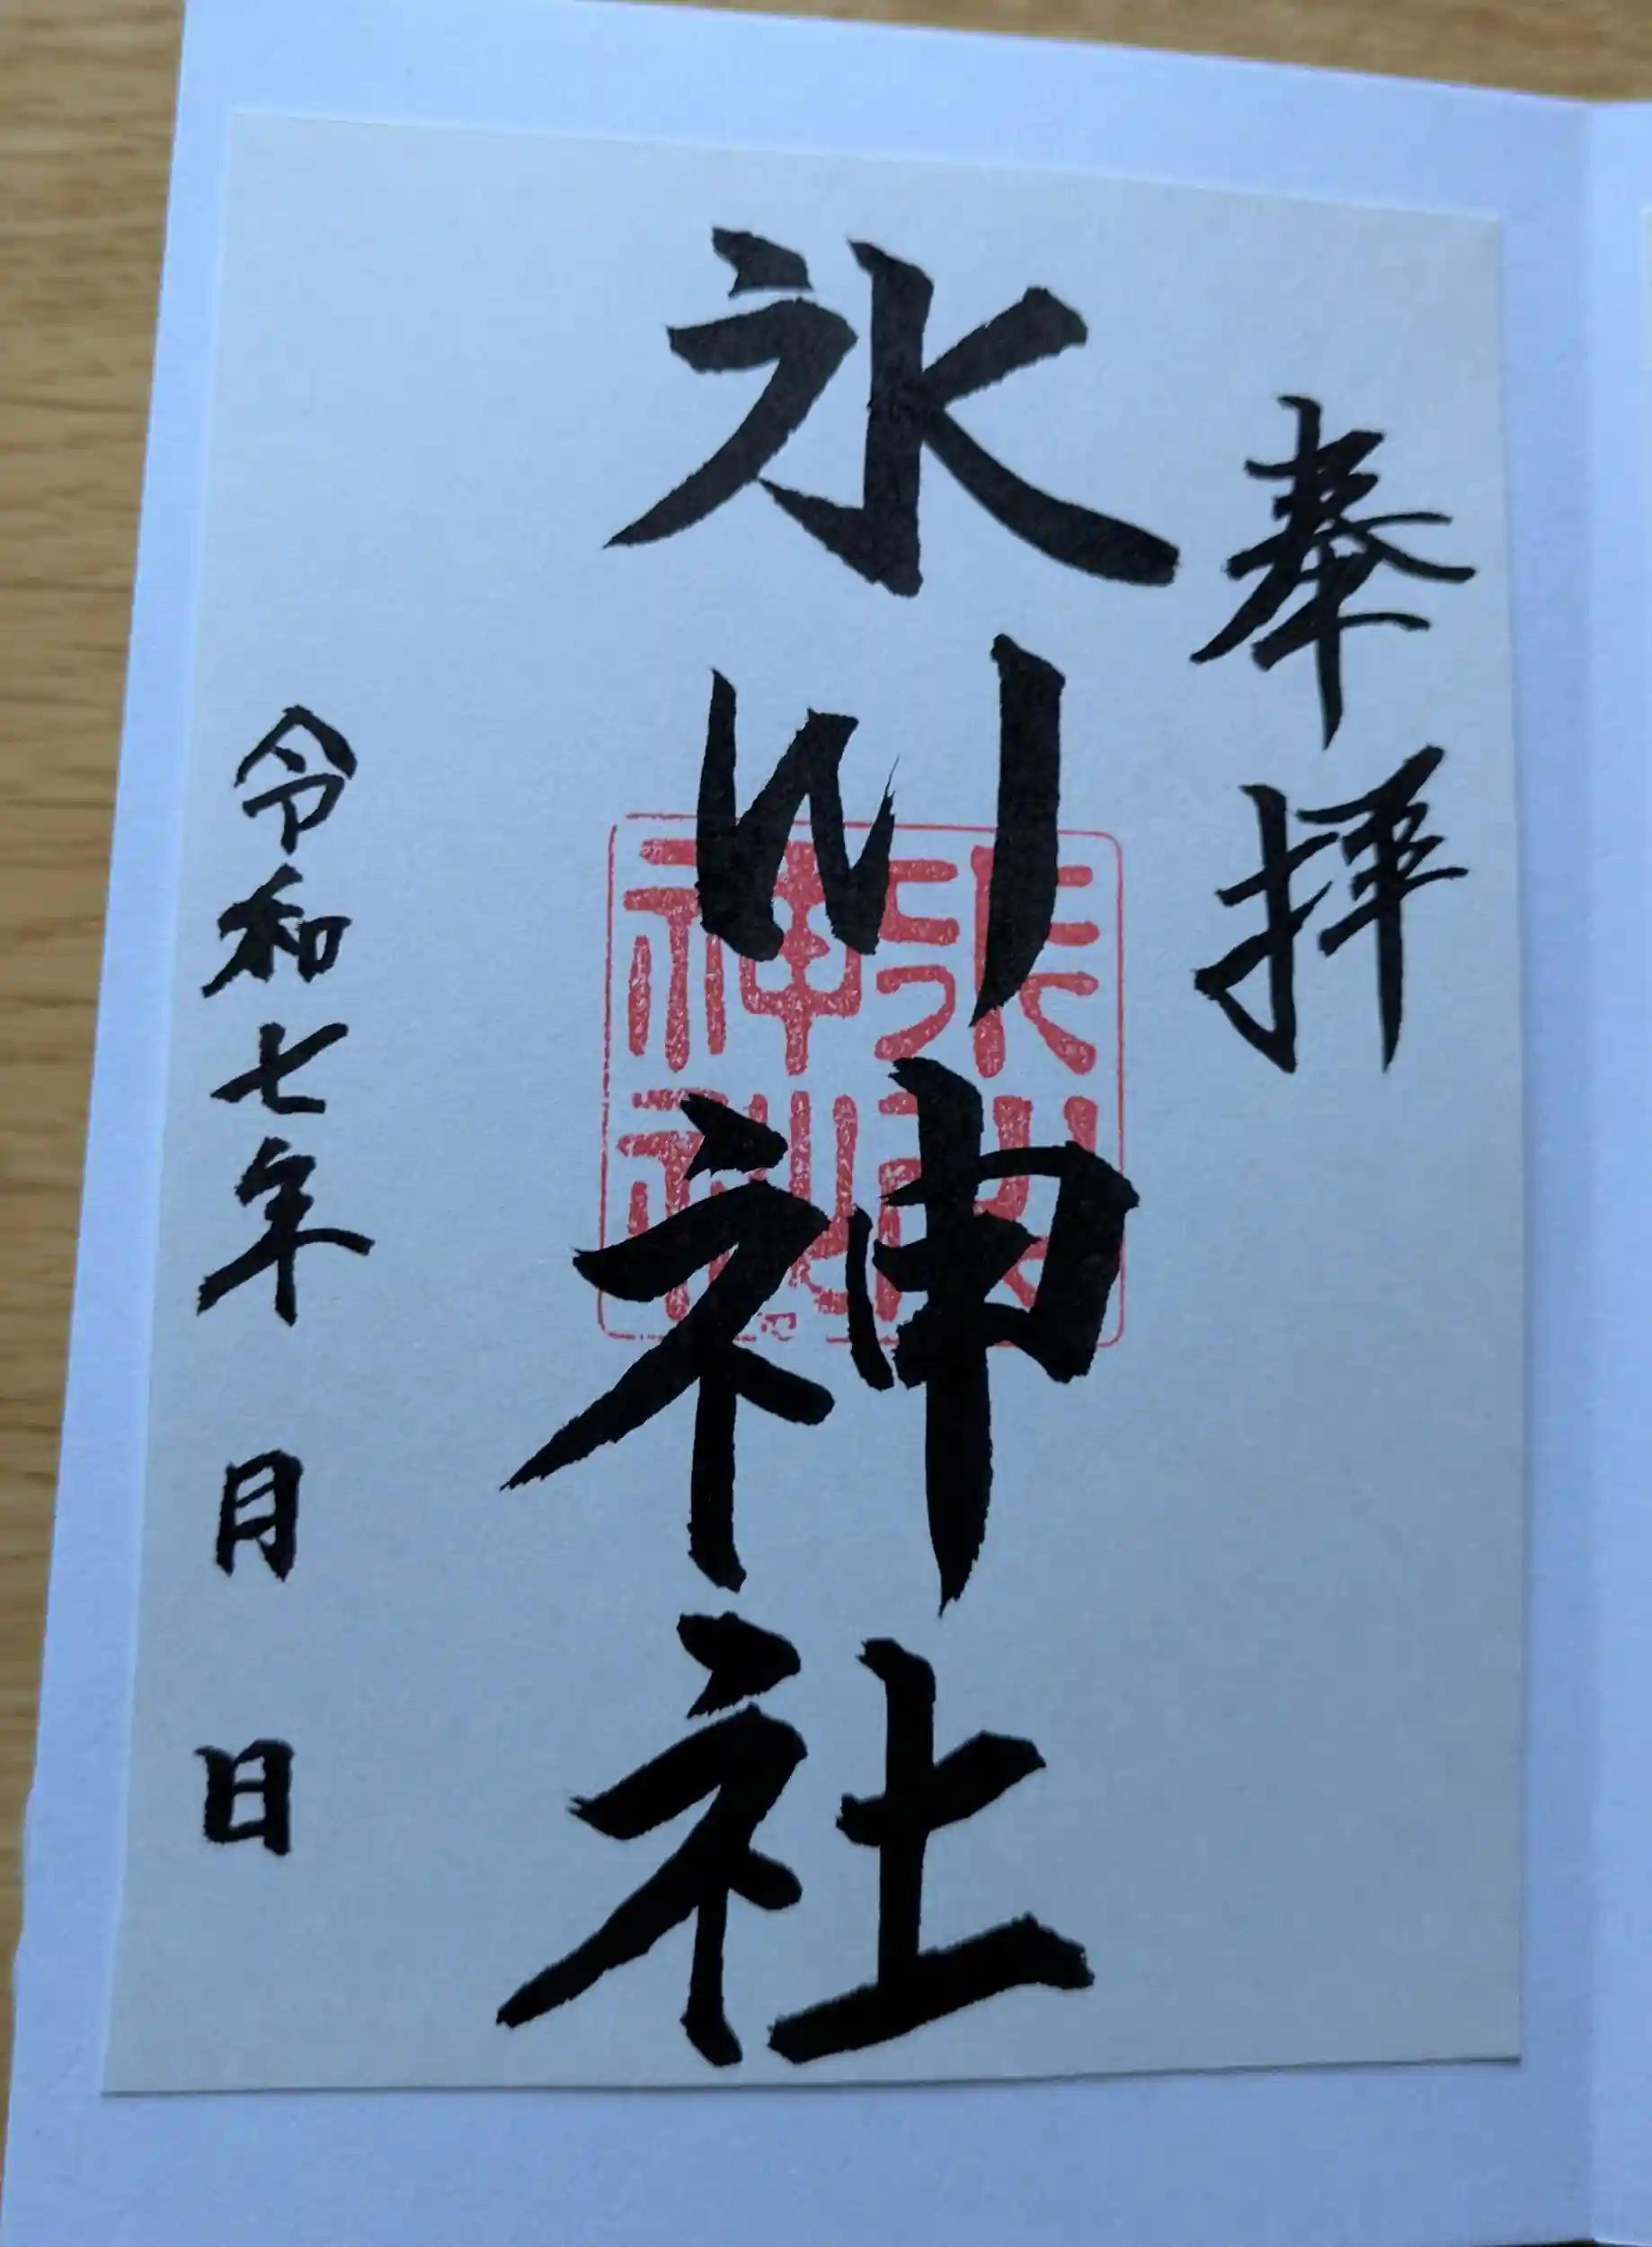 奉拝
氷川神社
氷川神社
令和七年 月 日